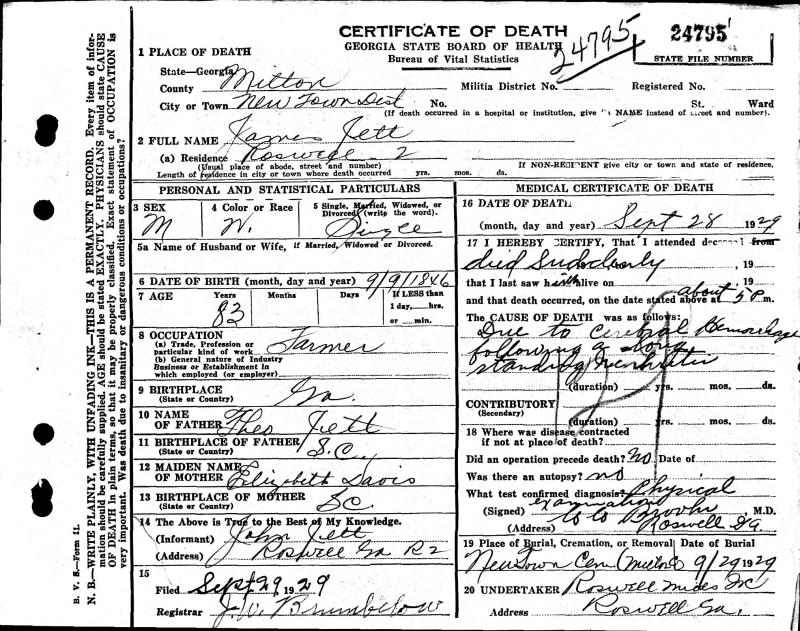 CERTIFICATE OF DEATH
GEORGIA STATE BOARD OF HEALTH
Bureau of Vital Statistics
24795
24795
STATE FILE NUMBER
1 PLACE OF DEATH
State—Georgia
County Milton Militia District No. Registered No.
City or Town New Town Dist No. St. Ward
(If death occurred in a hospital or institution, give its NAME instead of street and number).
2 FULL NAME James Jett
(a) Residence Roswell 2
(Usual place of abode, street and number) If NON-RESIDENT give city or town and state of residence.
Length of residence in city or town where death occurred yrs. mos. ds.
PERSONAL AND STATISTICAL PARTICULARS
3 SEX M
4 Color or Race W.
5 Single, Married, Widowed, or Divorced (write the word). Single
5a Name of Husband or Wife, if Married, Widowed or Divorced.
6 DATE OF BIRTH (month, day and year) 9/9/1846
7 AGE Years 83 Months Days If LESS than 1 day,....hrs. or ....min.
8 OCCUPATION
(a) Trade, Profession or particular kind of work Farmer
(b) General nature of Industry Business or Establishment in which employed (or employer)
9 BIRTHPLACE (State or Country) Ga.
10 NAME OF FATHER Theo Jett
11 BIRTHPLACE OF FATHER (State or Country) S.C.
12 MAIDEN NAME OF MOTHER Elizabeth Davis
13 BIRTHPLACE OF MOTHER (State or Country) SC.
14 The Above is True to the Best of My Knowledge.
(Informant) John Jett
(Address) Roswell Ga R2
15
Filed Sept 29 1929
Registrar J. W. Brumbelow
MEDICAL CERTIFICATE OF DEATH
16 DATE OF DEATH
(month, day and year) Sept 28 1929
17 I HEREBY CERTIFY, That I attended deceased from
died Suddenly , 19
that I last saw h alive on , 19
and that death occurred, on the date stated above at about 5 P m.
The CAUSE OF DEATH was as follows:
Due to Cerebral Hemorrhage
following a long
standing
(duration) yrs. mos. ds.
CONTRIBUTORY
(Secondary)
(duration) yrs. mos. ds.
18 Where was disease contracted
if not at place of death?
Did an operation precede death? no Date of
Was there an autopsy? no
What test confirmed diagnosis? Physical
examination
(Signed) M.D.
(Address) Roswell Ga.
19 Place of Burial, Cremation, or Removal Date of Burial
New Town Cem (Milton Co 9/29 1929
20 UNDERTAKER Roswell Inc
Address Roswell Ga.
B. V. S.—Form 11.
N. B.—WRITE PLAINLY, WITH UNFADING INK—THIS IS A PERMANENT RECORD. Every item of information should be carefully supplied. AGE should be stated EXACTLY. PHYSICIANS should state CAUSE OF DEATH in plain terms, so that it may be properly classified. Exact statement of OCCUPATION is very important. Was death due to insanitary or dangerous conditions or occupations?